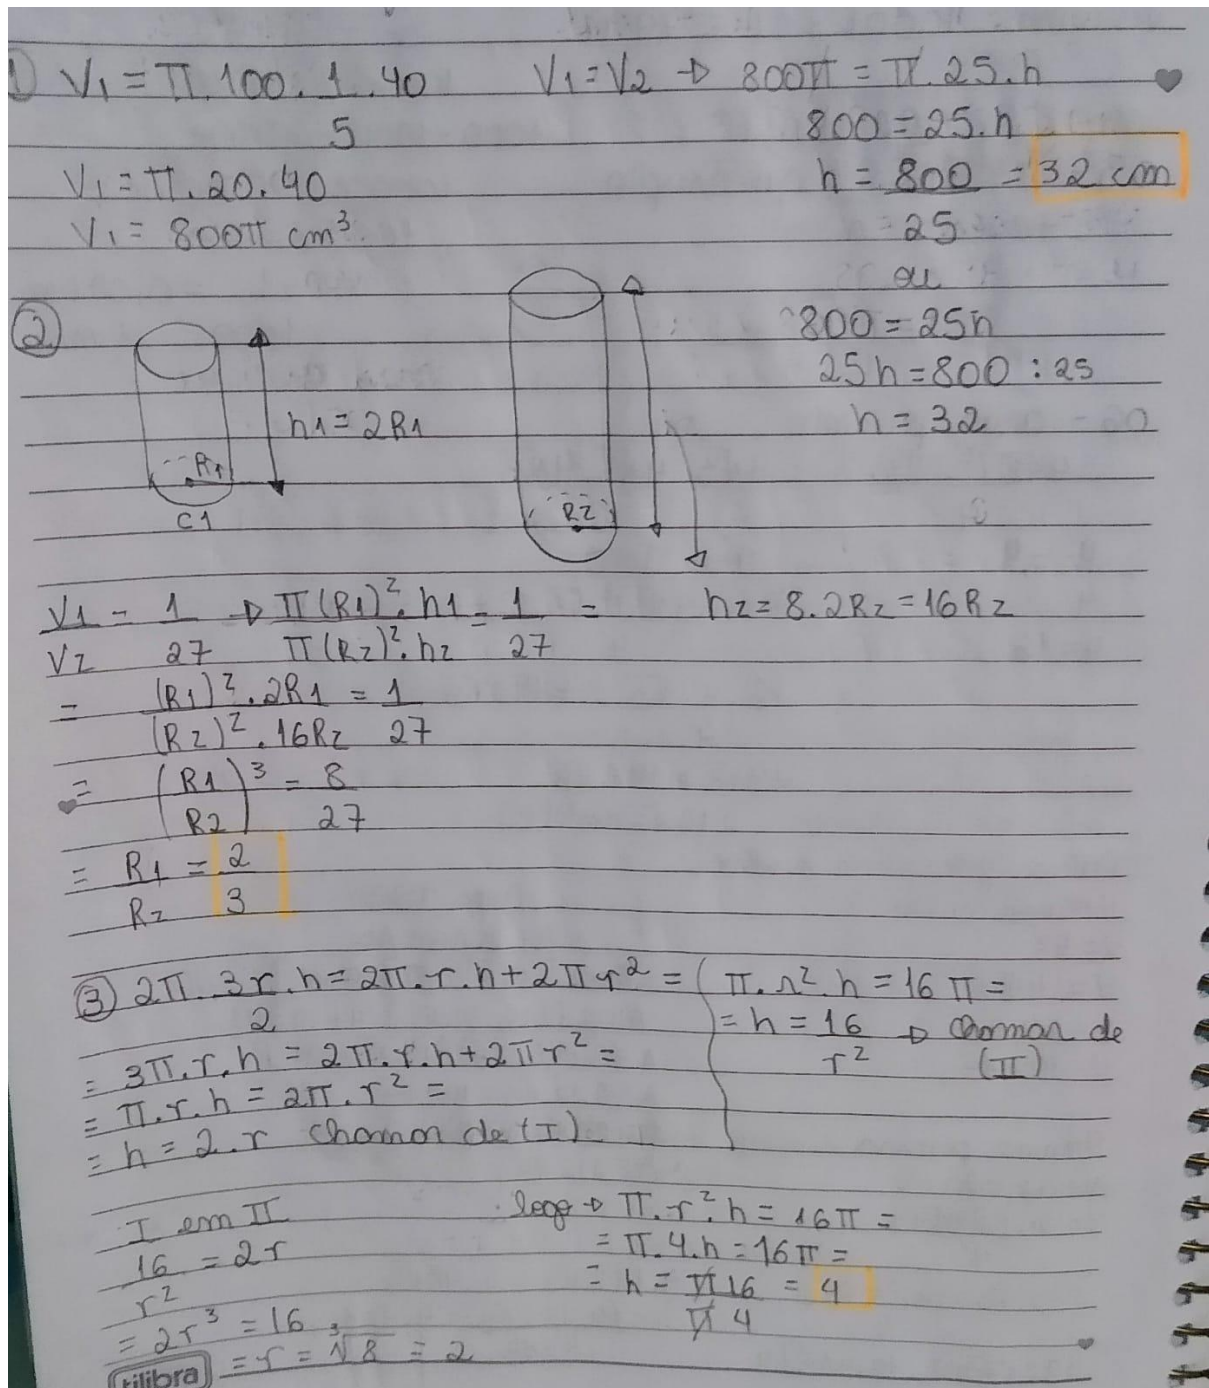 1) V1 = π.100.1.40
5
V1 = π.20.40
V1 = 800π cm³
V1 = V2 → 800π = π.25.h
800 = 25.h
h = 800 = 32 cm
25
ou
800 = 25h
25h = 800 : 25
h = 32
2
h1 = 2R1
R1
C1
R2
V1 = 1 → π(R1)².h1 = 1 =
V2 27 π(R2)².h2 27
h2 = 8.2R2 = 16R2
= (R1)².2R1 = 1
(R2)².16R2 27
= (R1)³ = 8
(R2) 27
= R1 = 2
R2 3
3 2π.3r.h = 2π.r.h + 2πr² =
2
= 3π.r.h = 2π.r.h + 2πr² =
= π.r.h = 2π.r² =
= h = 2.r chamar de (I)
π.r².h = 16π =
= h = 16 → chamar de
r² (II)
I em II
16 = 2r
r²
= 2r³ = 16
= r = ³√8 = 2
logo → π.r².h = 16π =
= π.4.h = 16π =
= h = π16 = 4
π 4
tilibra